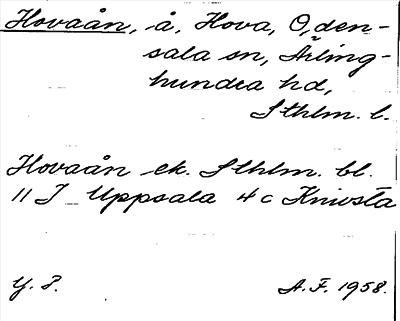 Hovaån, å, Hova, Oden-
sala sn, Ärling-
hundra hd,
Sthlm. l.
Hovaån ek. Sthlm. bl.
11 I Uppsala 4 c Knivsta
A.F. 1958.